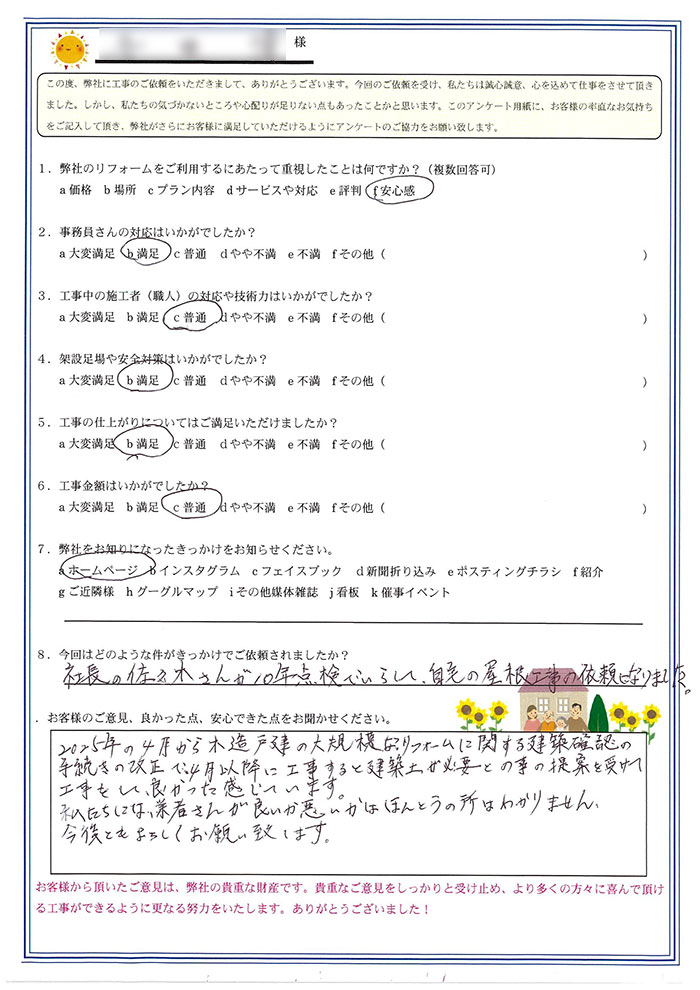 様
この度、弊社に工事のご依頼をいただきまして、ありがとうございます。今回のご依頼を受け、私たちは誠心誠意、心を込めて仕事をさせて頂き
ました。しかし、私たちの気づかないところや心配りが足りない点もあったことかと思います。このアンケート用紙に、お客様の率直なお気持ち
をご記入して頂き、弊社がさらにお客様に満足していただけるようにアンケートのご協力をお願い致します。
1．弊社のリフォームをご利用するにあたって重視したことは何ですか？（複数回答可）
a 価格 b 場所 c プラン内容 d サービスや対応 e 評判 f 安心感
2．事務員さんの対応はいかがでしたか？
a 大変満足 b 満足 c 普通 d やや不満 e 不満 f その他（ ）
3．工事中の施工者（職人）の対応や技術力はいかがでしたか？
a 大変満足 b 満足 c 普通 d やや不満 e 不満 f その他（ ）
4．架設足場や安全対策はいかがでしたか？
a 大変満足 b 満足 c 普通 d やや不満 e 不満 f その他（ ）
5．工事の仕上がりについてはご満足いただけましたか？
a 大変満足 b 満足 c 普通 d やや不満 e 不満 f その他（ ）
6．工事金額はいかがでしたか？
a 大変満足 b 満足 c 普通 d やや不満 e 不満 f その他（ ）
7．弊社をお知りになったきっかけをお知らせください。
a ホームページ b インスタグラム c フェイスブック d 新聞折り込み e ポスティングチラシ f 紹介
g ご近隣様 h グーグルマップ i その他媒体雑誌 j 看板 k 催事イベント
8．今回はどのような件がきっかけでご依頼されましたか？
社長の佐々木さんが10年点検でいらして、自宅の屋根工事の依頼になりました。
．お客様のご意見、良かった点、安心できた点をお聞かせください。
2025年の4月から木造戸建の大規模なリフォームに関する建築確認の
手続きの改正で、4月以降に工事すると建築士が必要との事の提案を受けて
工事をして良かった感じています。
私たちには、業者さんが良いか悪いかはほんとうの所はわかりません、
今後ともよろしくお願い致します。
お客様から頂いたご意見は、弊社の貴重な財産です。貴重なご意見をしっかりと受け止め、より多くの方々に喜んで頂け
る工事ができるように更なる努力をいたします。ありがとうございました！